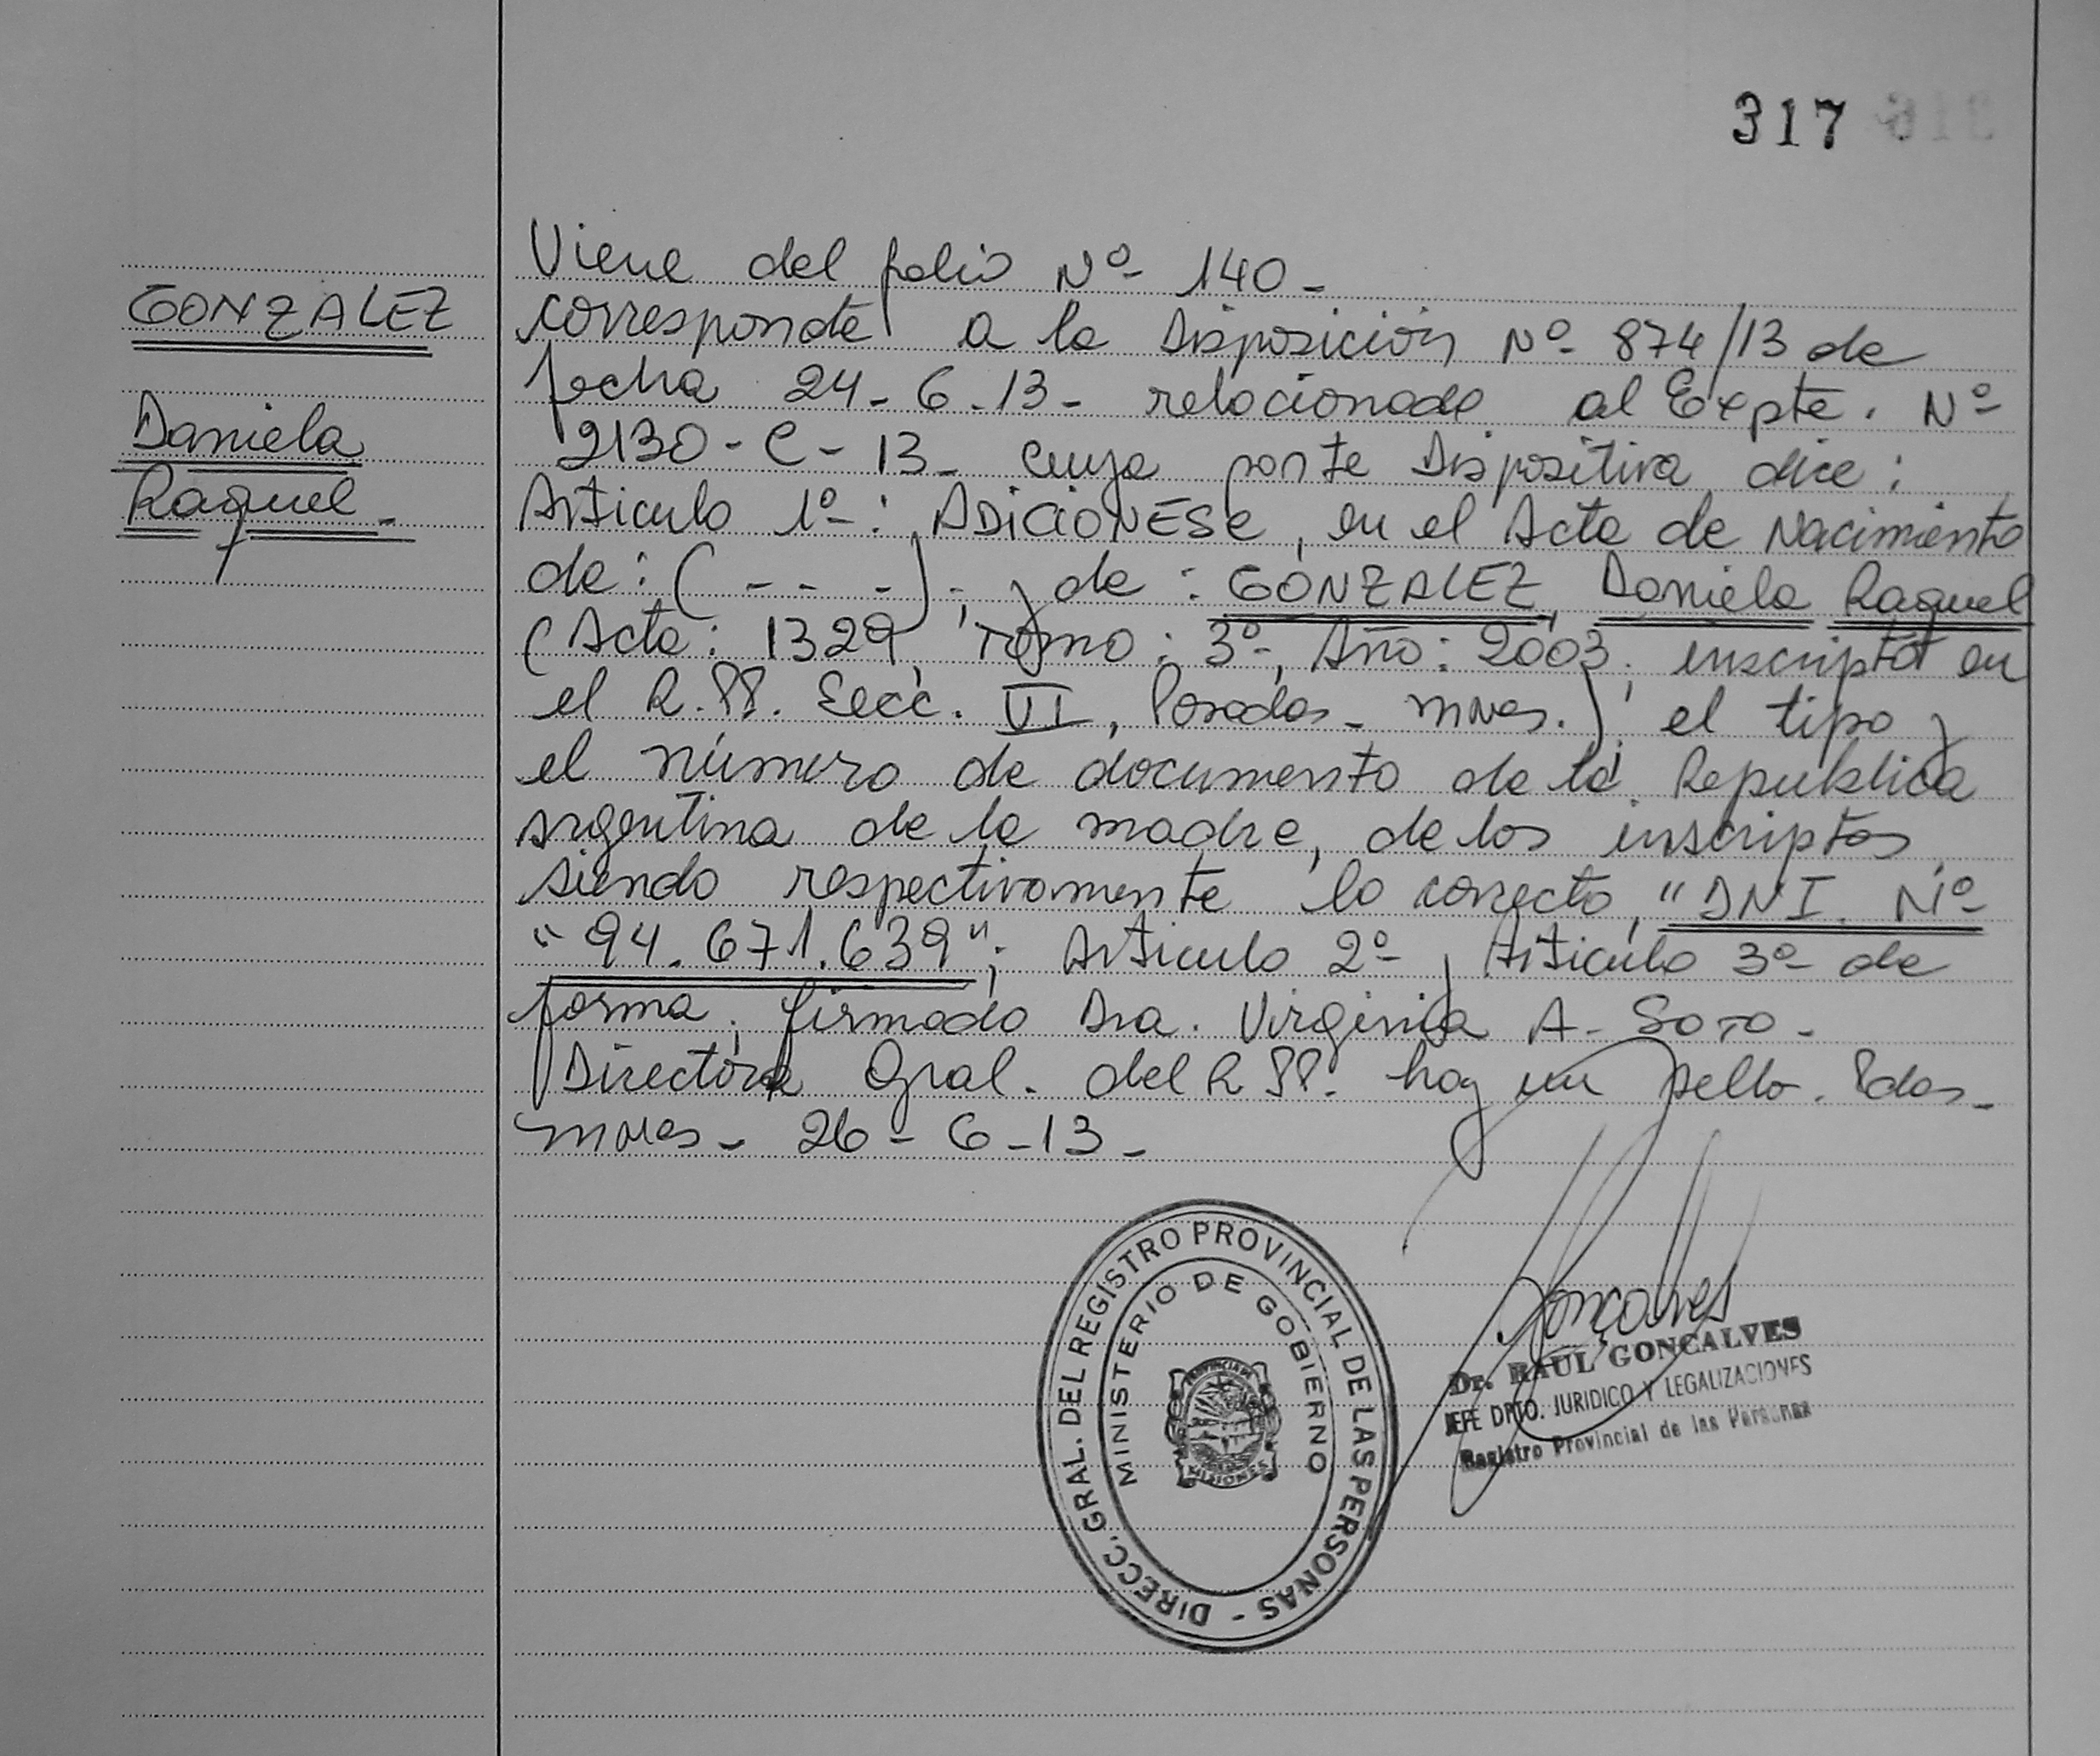 317
GONZALEZ
Daniela
Raquel -
Viene del folio Nº 140 -
corresponde a la Disposición Nº 874/13 de
fecha 24 - 6 - 13 - relacionado al Expte. Nº
2130 - C - 13 - cuya parte Dispositiva dice :
Articulo 1º : ADICIONESE, en el Acta de Nacimiento
de : ( - - - ) ; y de : GONZALEZ, Daniela Raquel
(Acta : 1329, Tomo : 3º, Año : 2003, inscripta en
el R.PP. Secc. VI, Posadas - Mnes.) ; el tipo y
el número de documento de la Republica
Argentina de la madre, de los inscriptos,
siendo respectivamente lo correcto, "DNI. Nº
"94.671.639" ; Articulo 2º y Articulo 3º de
forma ; firmado Dra. Virginia A - Soto -
Directora Gral. del R PP. hay un sello. Pdas -
Mnes - 26 - 6 - 13 -
DIRECC. GRAL. DEL REGISTRO PROVINCIAL DE LAS PERSONAS -
MINISTERIO DE GOBIERNO
MISIONES
Goncalves
Dr. RAUL GONCALVES
JEFE DPTO. JURIDICO Y LEGALIZACIONES
Registro Provincial de las Personas